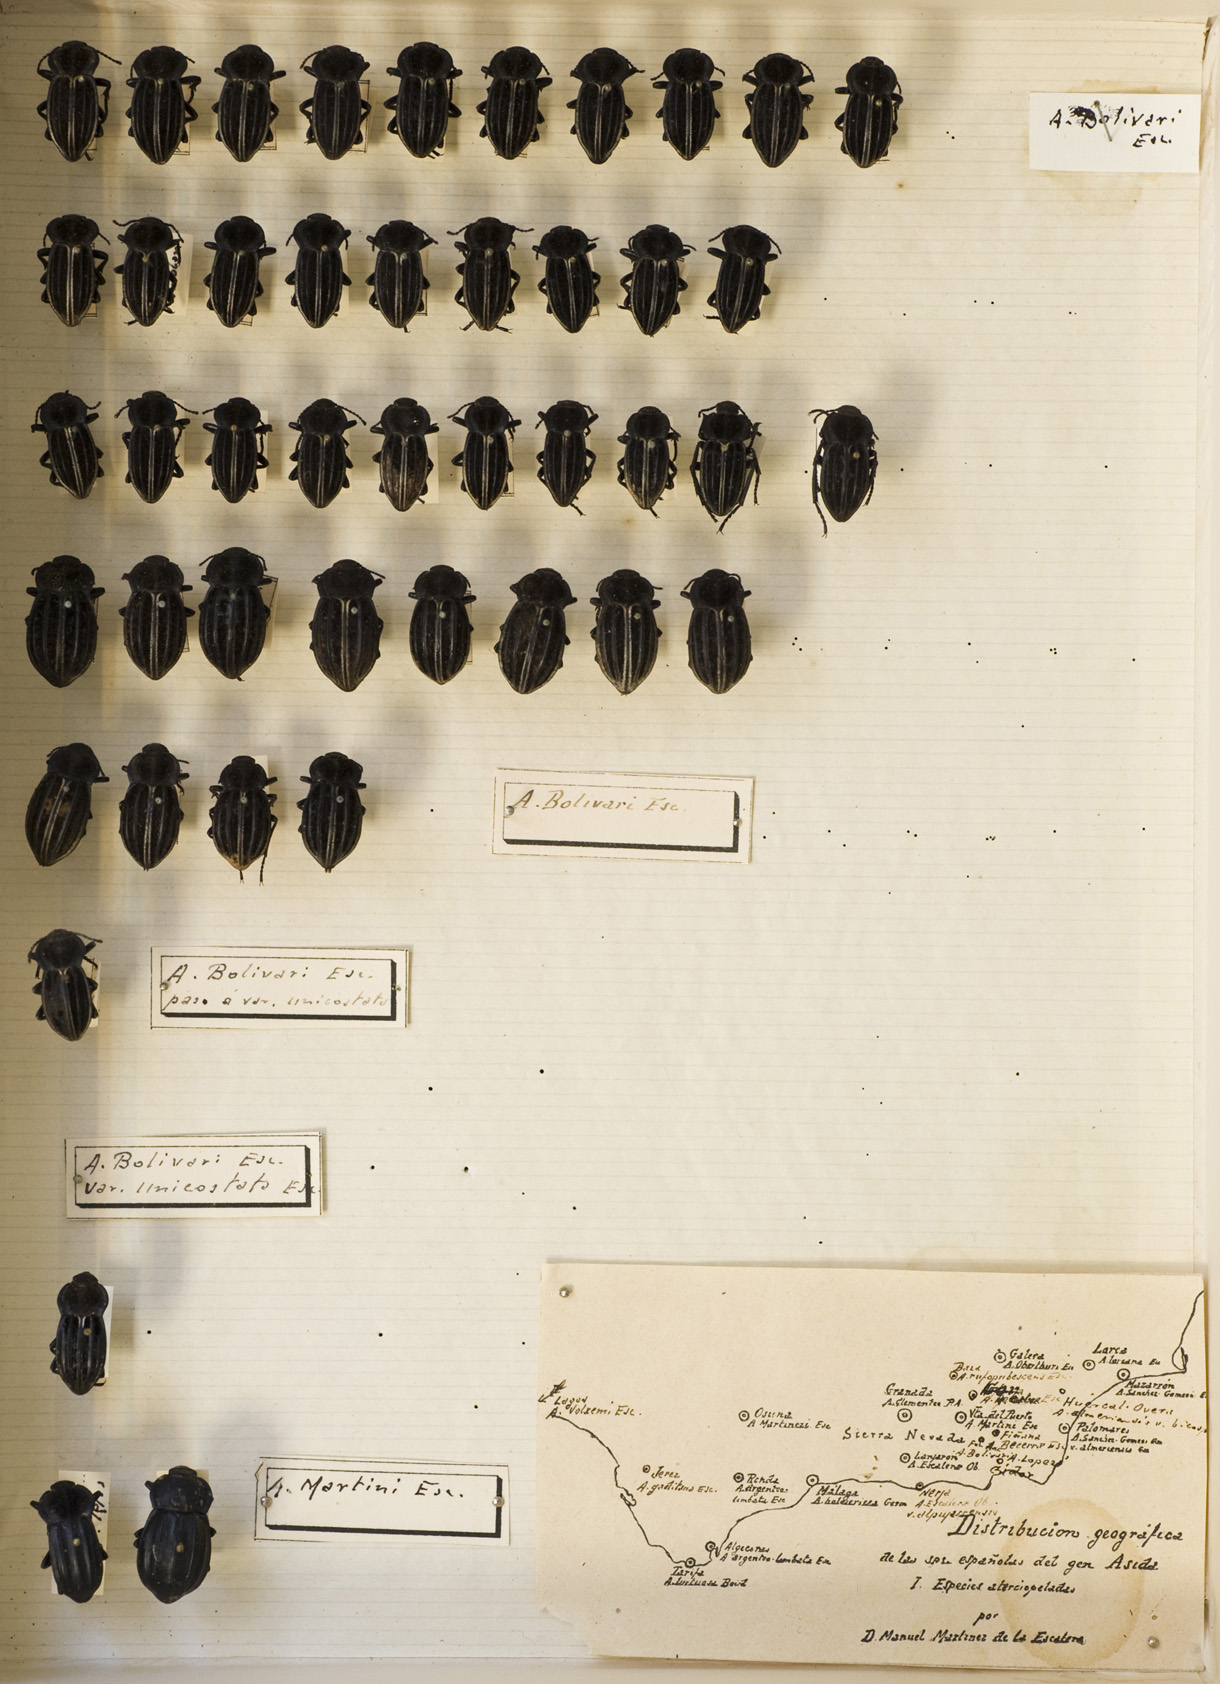 A. Bolivari
Esc.
A. Bolivari Esc.
A. Bolivari Esc.
paso á var. unicostata
A. Bolivari Esc.
var. unicostata Esc.
A. Martini Esc.
Galera
A. Oberthuri Esc
Lorca
A. lorcana Esc
Baza
A. rufopubescens Esc.
Mazarrón
A. Sanchez-Gomezi E
Granada
A. Clementei P.A.
Huercal-Overa
Lagos
A. Volxemi Esc.
Osuna
A. Martinezi Esc
Vta del Puerto
A. Martini Esc
Palomares
A. Sanchz-Gomezi Esc
v. almeriensis Esc
Sierra Nevada
Fiñana
A. Becerrae Esc
A. Bolivari
A. Lopezi
Lanjaron
A. Escalerae Ob.
Jerez
A. gaditana Esc.
Ronda
A. argenteo
limbata Esc
Málaga
A. holosericea Germ
Nerja
A. Escalerae Ob.
v. alpujarrensis
Distribucion geográfica
de las sps. españolas del gen Asida
I. Especies aterciopeladas
por
D. Manuel Martinez de la Escalera
Algeciras
A. argenteo-limbata Esc
Tarifa
A. luctuosa Boisd